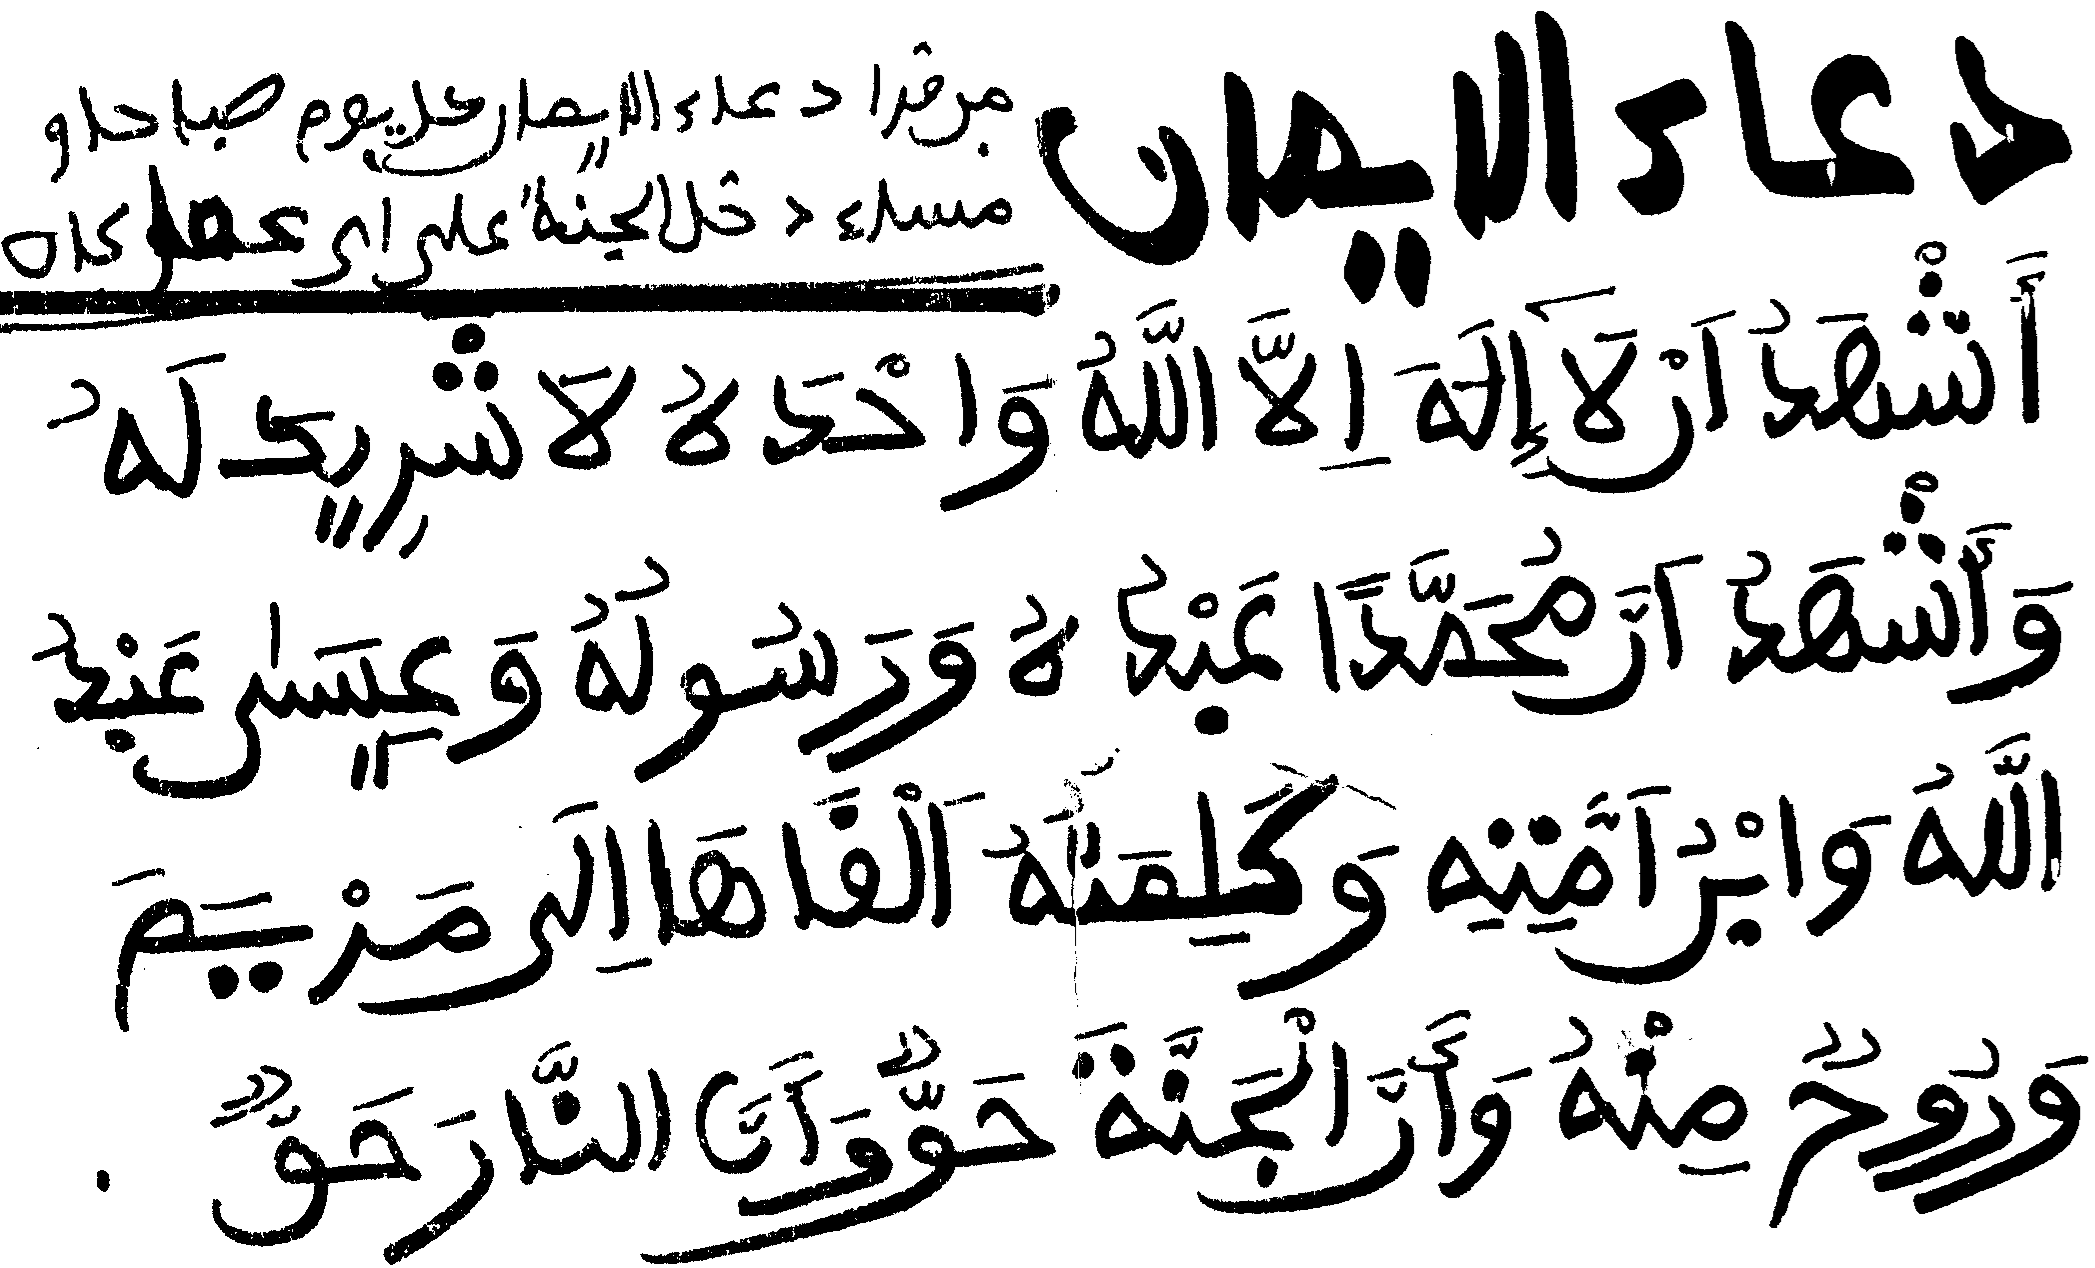 دعاء الايمان
من قرا دعاء الايمان كل يوم صباحا و
مساء دخل الجنة على اى عمل كان
أَشْهَدُ اَنْ لَا إِلَهَ اِلَّا اللَّهُ وَاحْدَهُ لَا شْرِيكَ لَهُ
وَأَشْهَدُ اَنَّ مُحَمَّدًا عَبْدُهُ وَرَسُولُهُ وَعِيسَى عَبْدُ
اللَّهُ وَابْنُ اَمَّتِهِ وَكَلِمَتُهُ اَلْقَاهَا اِلَى مَرْيَمَ
وَرُوحٌ مِنْهُ وَأَنَّ الْجَنَّةَ حَقٌّ وَأَنَّ النَّارَ حَقٌّ .